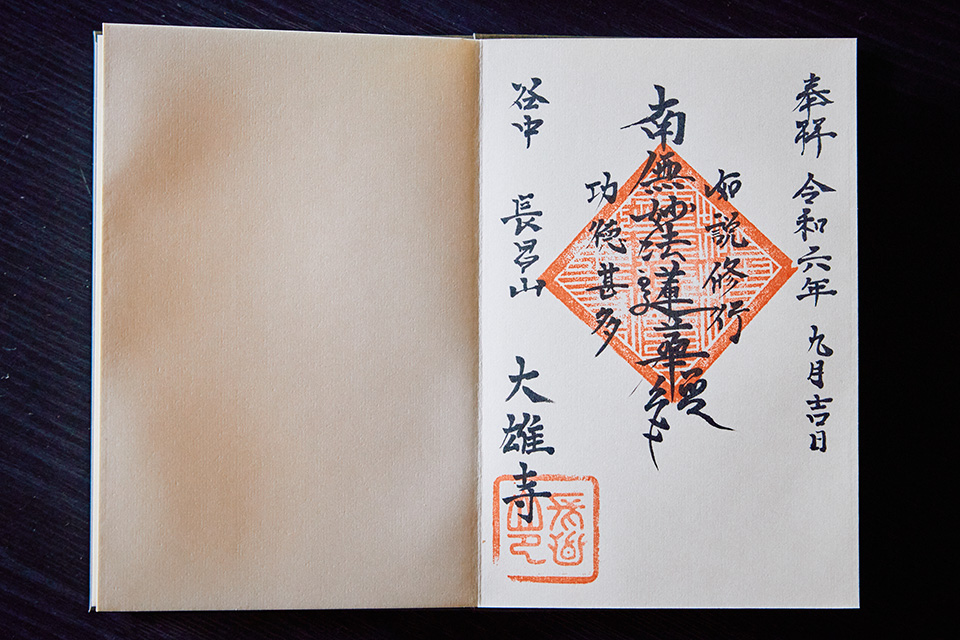 奉拝 令和六年 九月吉日
如説修行
南無妙法蓮華経
功徳甚多
谷中 長昌山 大雄寺